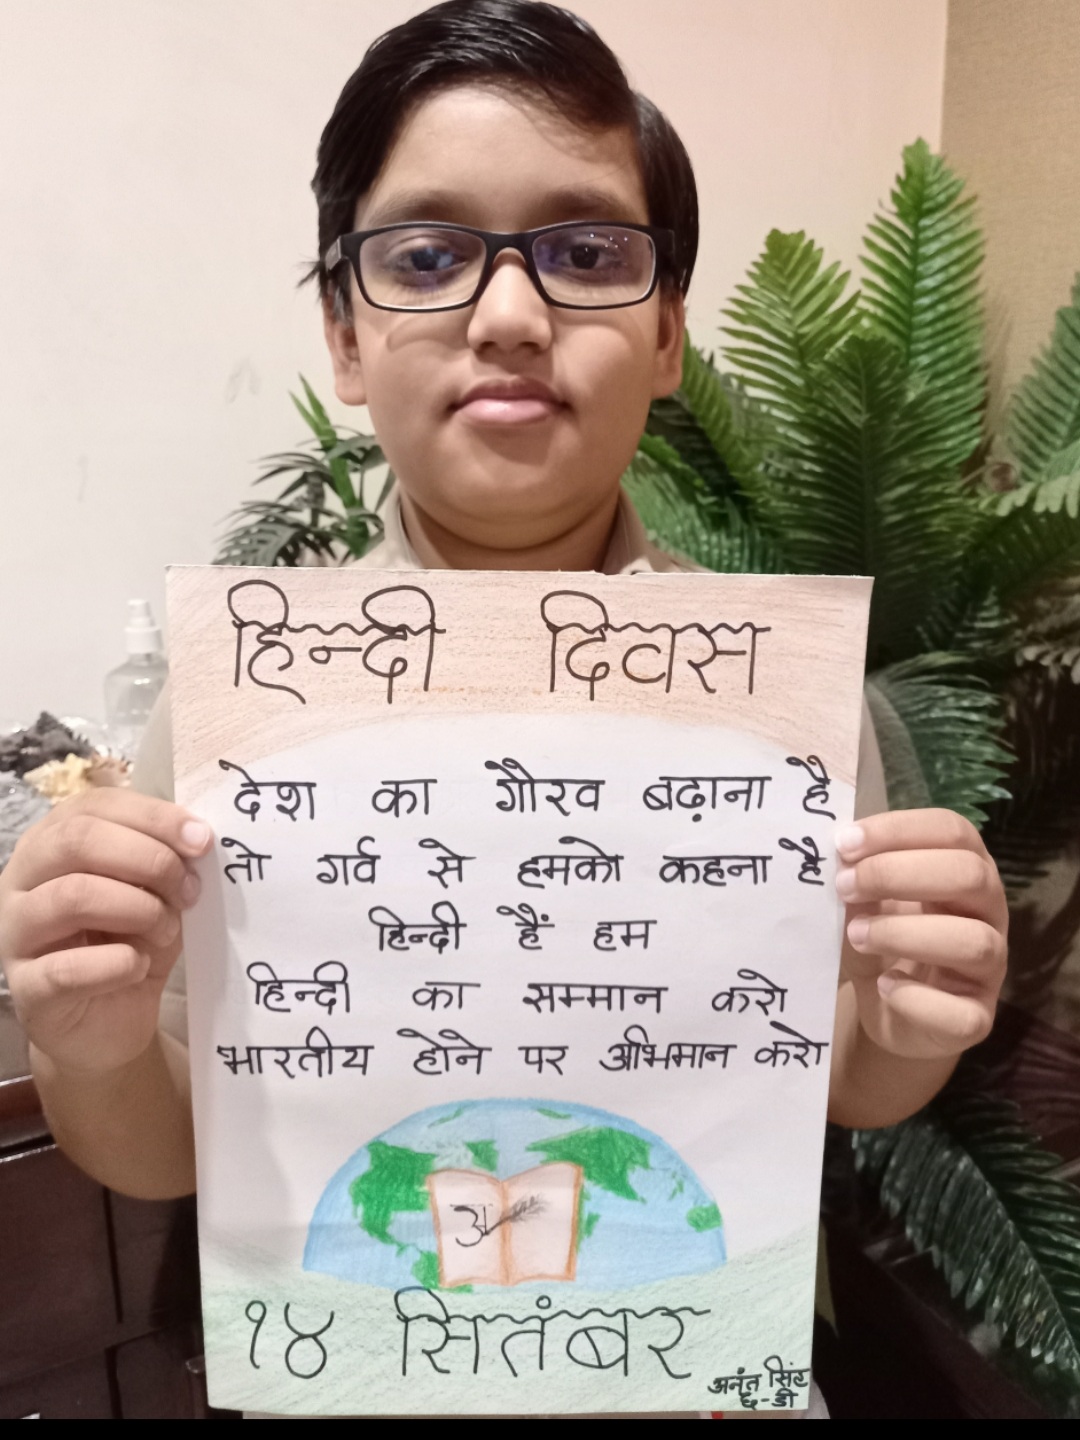 हिन्दी दिवस
देश का गौरव बढ़ाना है
तो गर्व से हमको कहना है
हिन्दी हैं हम
हिन्दी का सम्मान करो
भारतीय होने पर अभिमान करो
अ
१४ सितंबर
अनंत सिंह
छ-डी